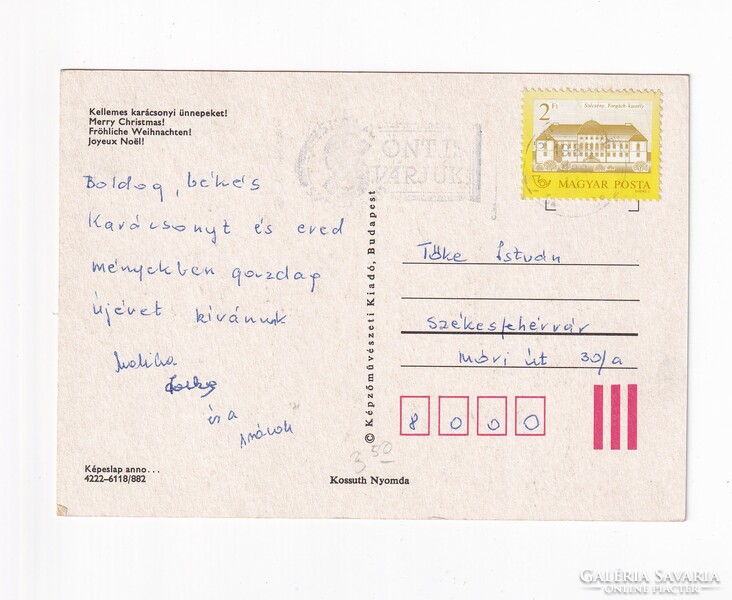 Kellemes karácsonyi ünnepeket!
Merry Christmas!
Fröhliche Weihnachten!
Joyeux Noël!
Boldog, békés
Karácsonyt és ered
ményekben gazdag
újévet kívánunk
és a
2 Ft
MAGYAR POSTA
VÁRJUK
Tőke István
Székesfehérvár
Móri út 30/a
8 0 0 0
© Képzőművészeti Kiadó, Budapest
3 50
Képeslap anno...
4222–6118/882
Kossuth Nyomda
GALÉRIA SAVARIA
ONLINE PIACTÉR